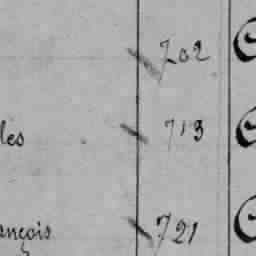 702
les 713
ançois 721